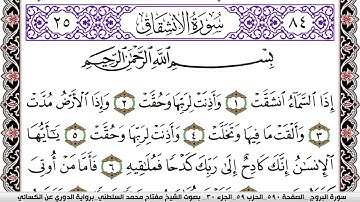 ٨٤ سُورَةُ الِانشِقَاقِ ٢٥
بِسْمِ اللَّهِ الرَّحْمَٰنِ الرَّحِيمِ
إِذَا السَّمَآءُ انشَقَّتْ ١ وَأَذِنَتْ لِرَبِّهَا وَحُقَّتْ ٢ وَإِذَا الْأَرْضُ مُدَّتْ
٣ وَأَلْقَتْ مَا فِيهَا وَتَخَلَّتْ ٤ وَأَذِنَتْ لِرَبِّهَا وَحُقَّتْ ٥ يَٰٓأَيُّهَا
الْإِنسَٰنُ إِنَّكَ كَادِحٌ إِلَىٰ رَبِّكَ كَدْحًا فَمُلَٰقِيهِ ٦ فَأَمَّا مَنْ أُوتِىَ
سورة البروج - الصفحة ٥٩٠ - الحزب ٥٩ - الجزء ٣٠ - بصوت الشيخ مفتاح محمد السلطني - برواية الدوري عن الكسائي